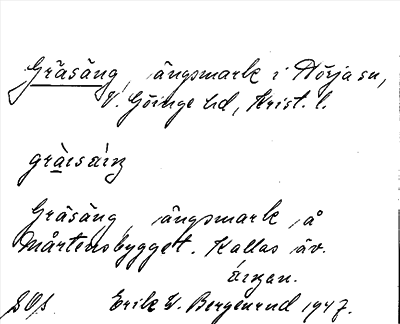 Gräsäng, ängsmark i Nörja sn,
V. Göinge hd, Krist. l.
Gräsäng, ängsmark, å
Mårtensbygget. Kallas äv.
Erik W. Bergenrud 1947.